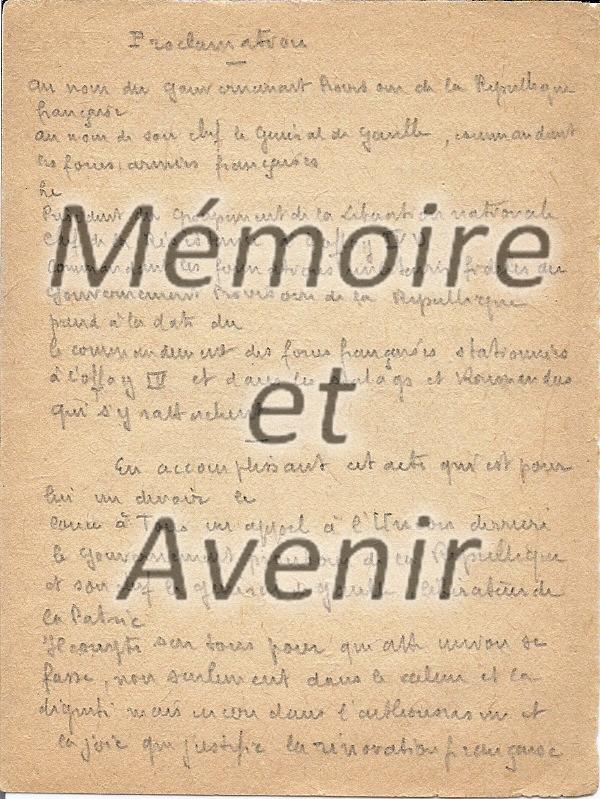 Proclamation
au nom du gouvernement Provisoire de la République
française
au nom de son chef le Général de Gaulle, commandant
les forces armées françaises
Le
Président du Groupement de la Libération nationale
Chef de la Résistance à l'oflag IV
Commandant les formations militaires du
Gouvernement Provisoire de la République
prend à la date du
le commandement des forces françaises stationnées
à l'oflag IV et dans les stalags et Kommandos
qui s'y rattachent
En accomplissant cet acte qui est pour
lui un devoir le
lance à Tous un appel à l'Union derrière
le Gouvernement provisoire de la République
et son chef le général de Gaulle libérateur de
la Patrie
Il compte sur tous pour que cette union se
fasse, non seulement dans le calme et la
dignité mais encore dans l'enthousiasme et
la joie que justifie la rénovation française
Mémoire
et
Avenir